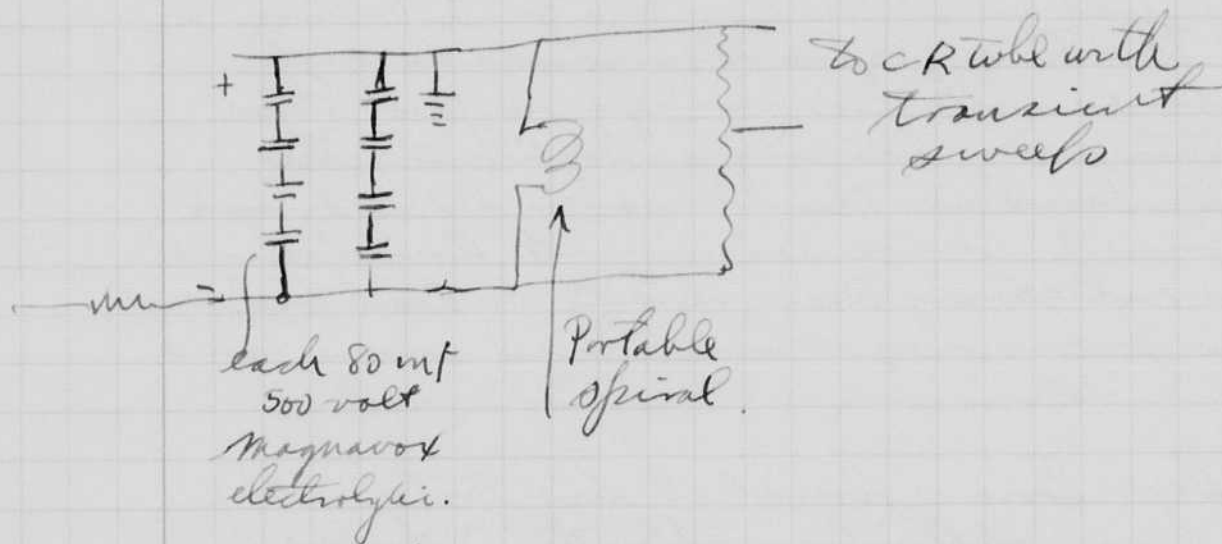 +
to CR tube with
transient
sweep
-
each 80 mf
500 volt
Magnavox
electrolytic.
Portable
spiral.